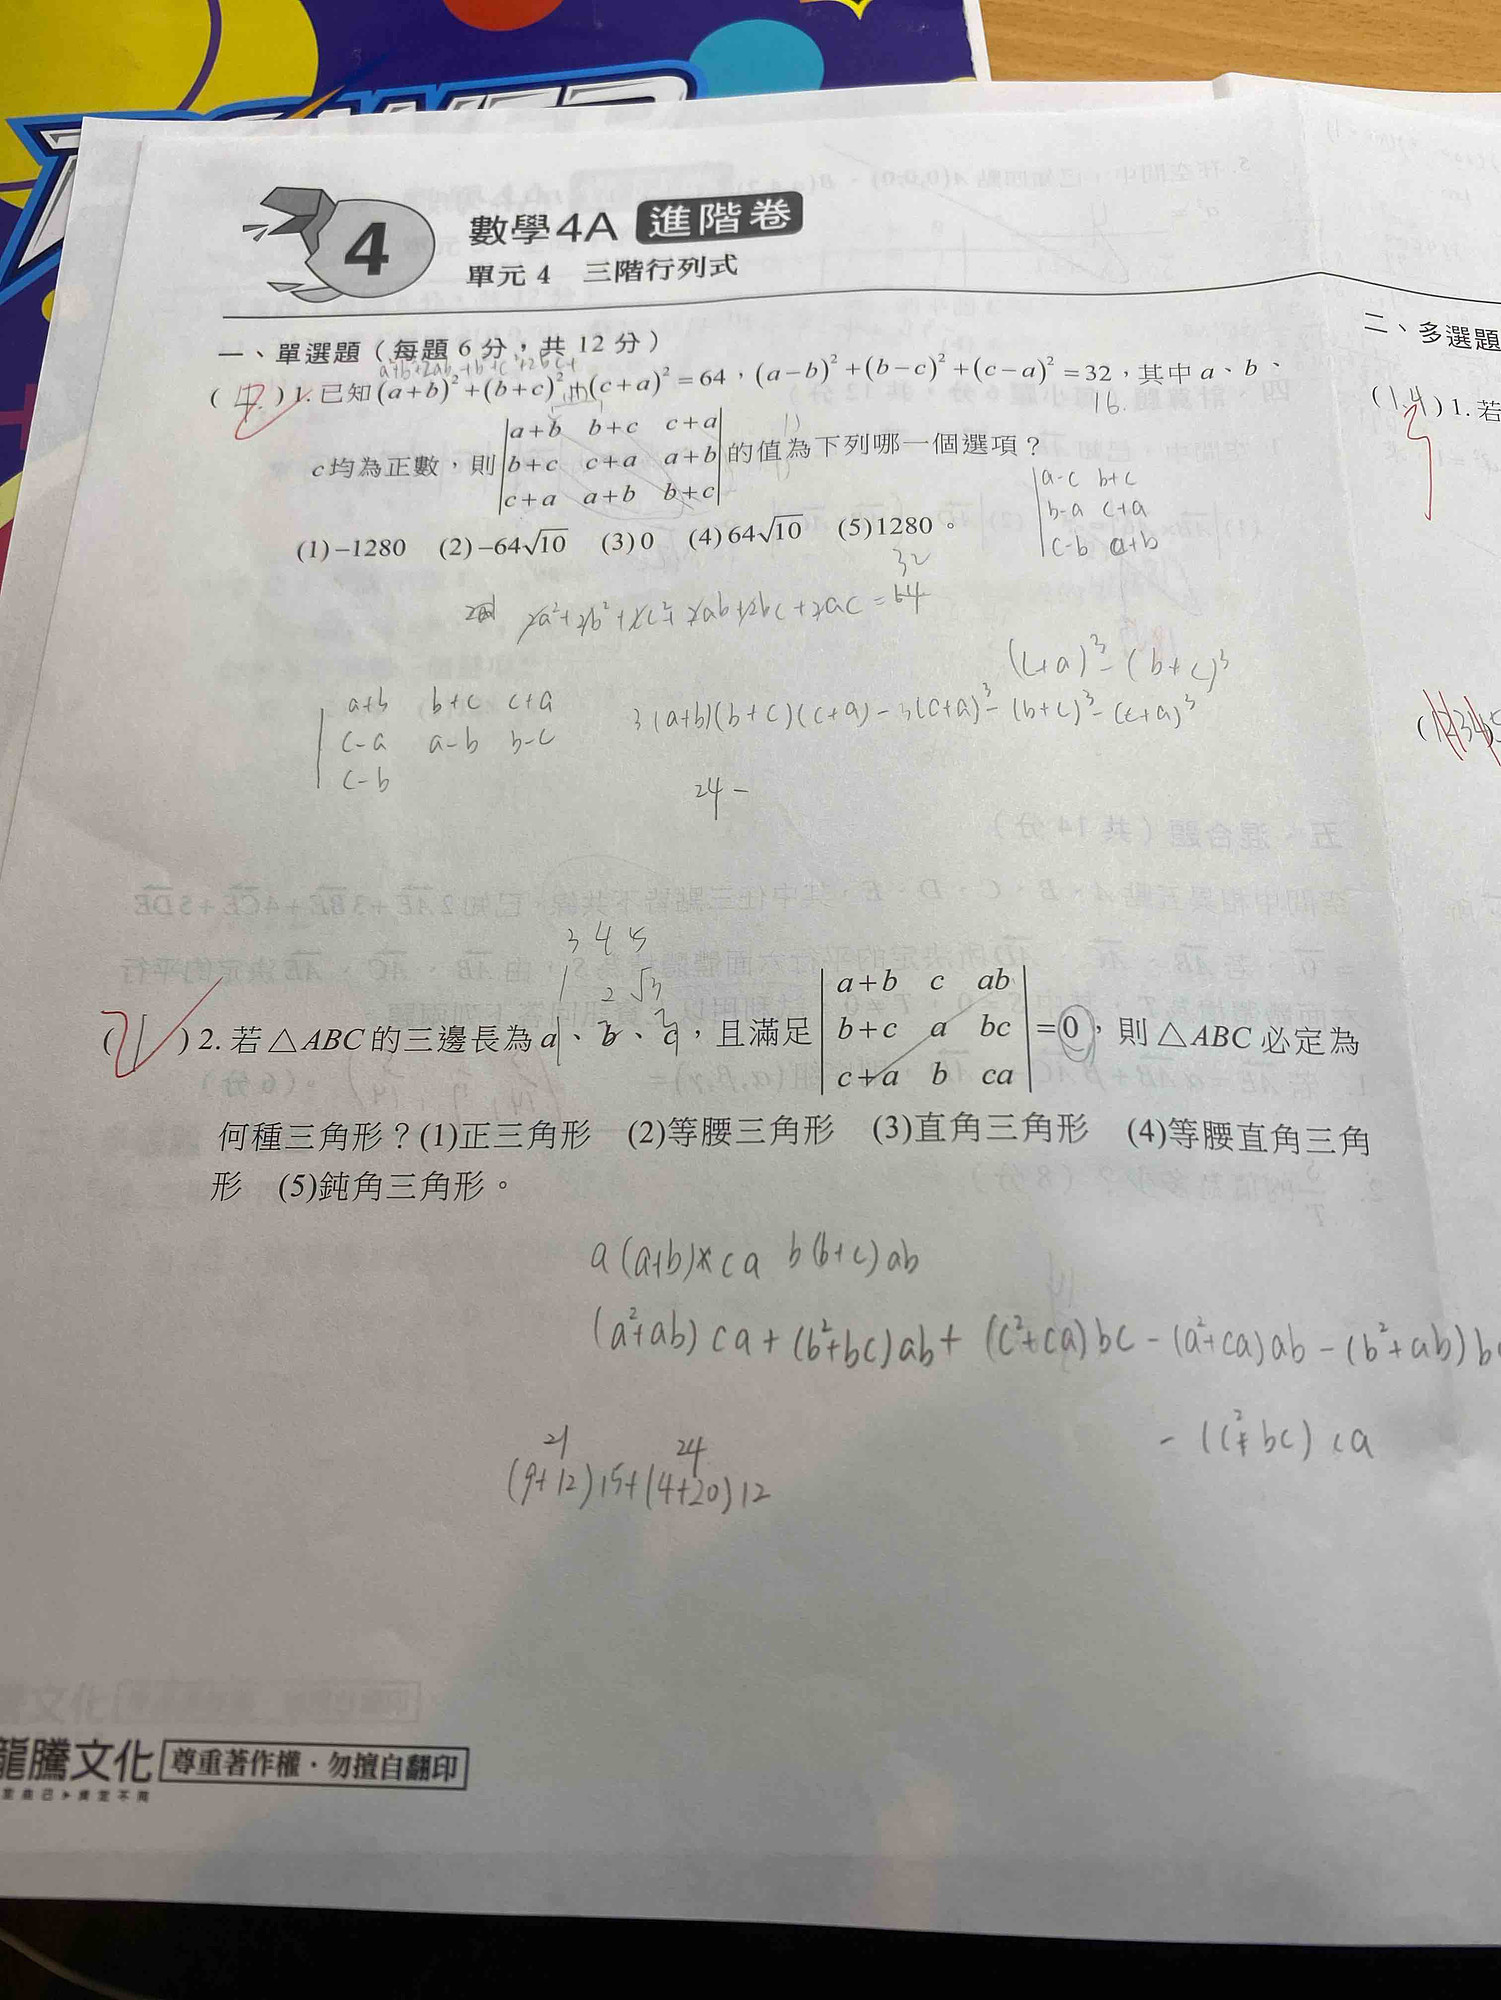 4
數學4A 進階卷
單元 4 三階行列式
一、單選題（每題 6 分，共 12 分）
二、多選題
1. 已知(a+b)²+(b+c)²+(c+a)²=64，(a−b)²+(b−c)²+(c−a)²=32，其中 a、b、
16.
(1,4) 1. 若
c 均為正數，則 |a+b b+c c+a| 的值為下列哪一個選項？
|b+c c+a a+b|
|c+a a+b b+c|
a-c b+c
b-a c+a
c-b a+b
(1) −1280 (2) −64√10 (3) 0 (4) 64√10 (5) 1280。
32
2a²+2b²+2c²+2ab+2bc+2ac=64
(c+a)³-(b+c)³
a+b b+c c+a
c-a a-b b-c
c-b
3(a+b)(b+c)(c+a)-3(c+a)³-(b+c)³-(c+a)³
24-
3 4 5
1 2 √3
(1) 2. 若△ABC 的三邊長為 a、b、c，且滿足 |a+b c ab| =0，則△ABC 必定為
|b+c a bc|
|c+a b ca|
何種三角形？(1)正三角形 (2)等腰三角形 (3)直角三角形 (4)等腰直角三角
形 (5)鈍角三角形。
a(a+b)×ca b(b+c)ab
(a²+ab)ca+(b²+bc)ab+(c²+ca)bc-(a²+ca)ab-(b²+ab)b
-(c²+bc)ca
21 24
(9+12)15+(4+20)12
龍騰文化 尊重著作權・勿擅自翻印